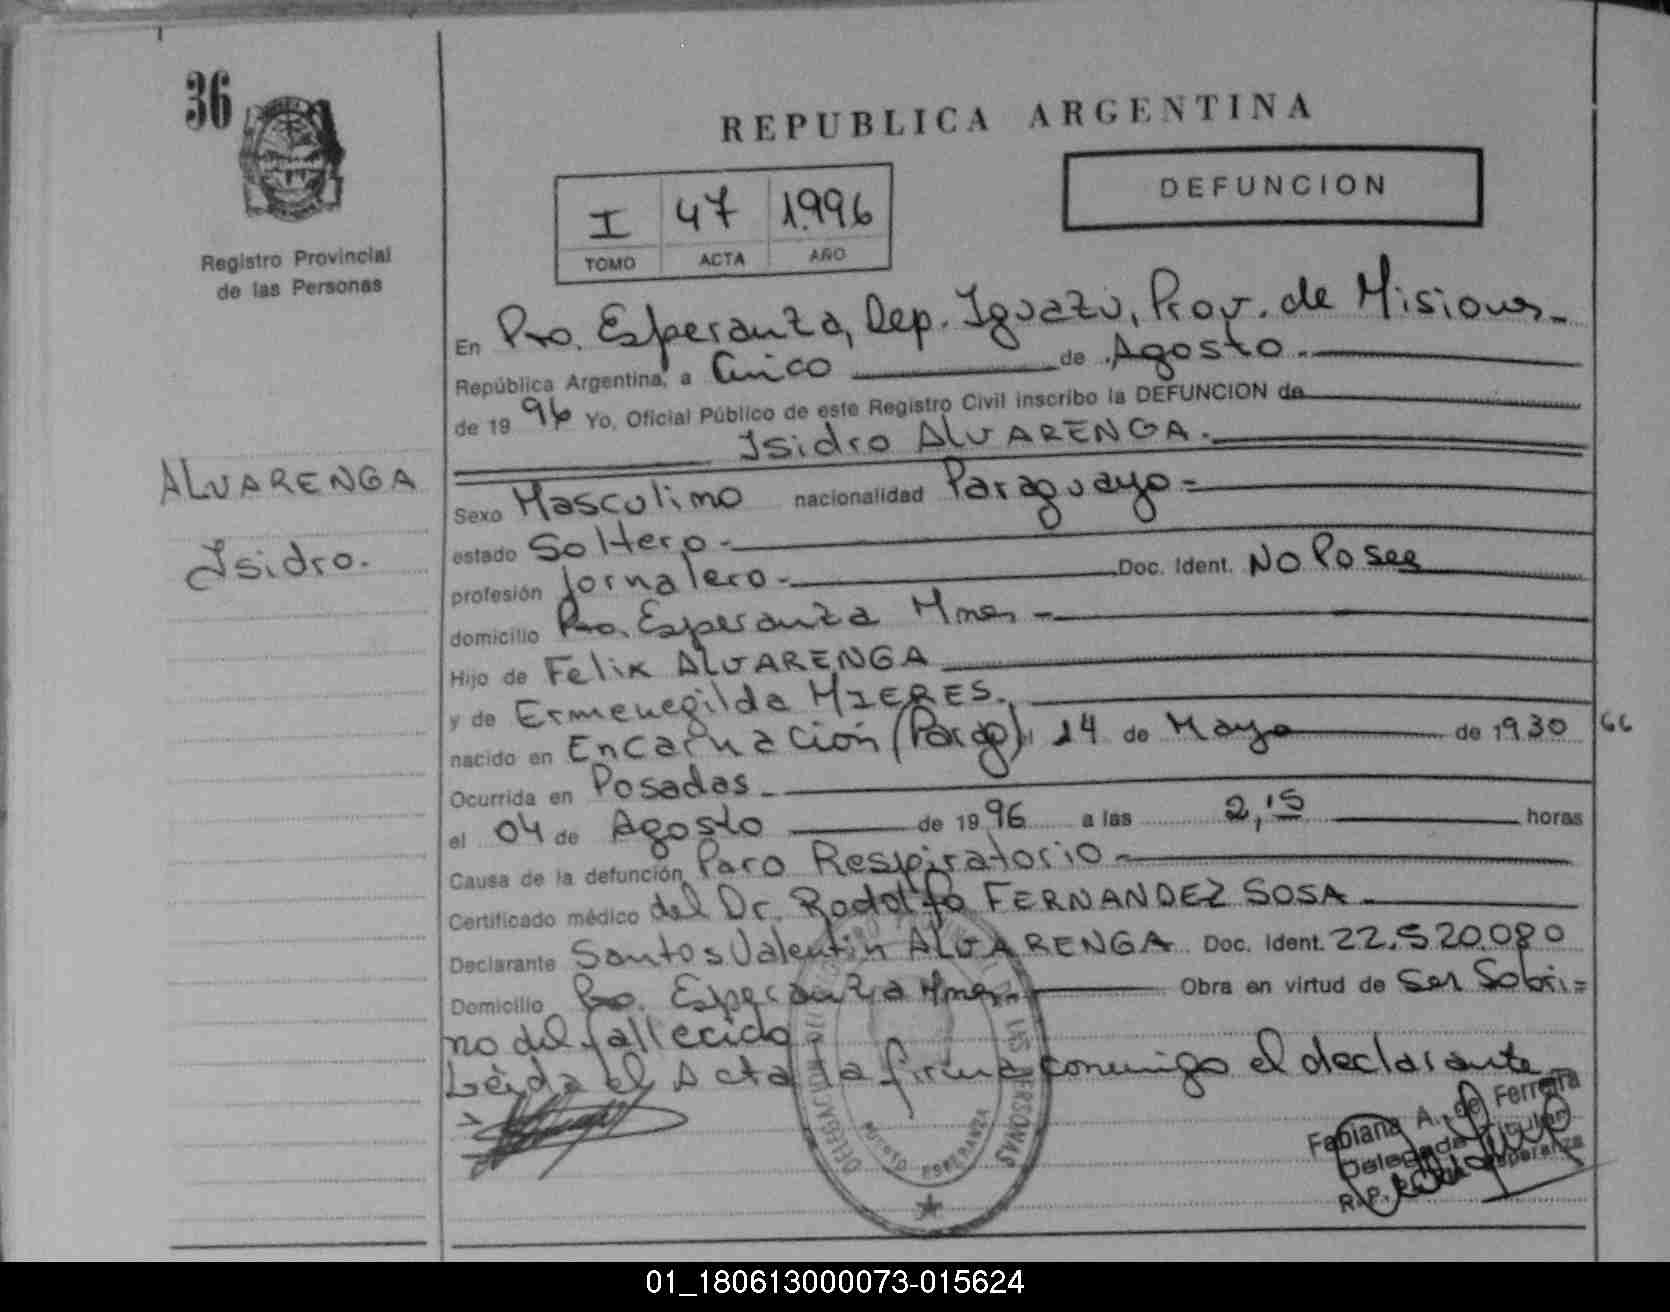 36
Registro Provincial
de las Personas
ALVARENGA
Isidro.
REPUBLICA ARGENTINA
I 47 1.996
TOMO ACTA AÑO
DEFUNCION
En Pto. Esperanza, Dep. Iguazú, Prov. de Misiones-
República Argentina, a Cinco de Agosto.-
de 19 96 Yo, Oficial Público de este Registro Civil inscribo la DEFUNCION de
Isidro ALVARENGA.-
Sexo Masculino nacionalidad Paraguayo-
estado Soltero-
profesión Jornalero- Doc. Ident. No Posee
domicilio Pto. Esperanza Mnes-
Hijo de Felix ALVARENGA
y de Ermenegilda MIERES.
nacido en Encarnación (Parag) 14 de Mayo de 1930 66
Ocurrida en Posadas-
el 04 de Agosto de 19 96 a las 2,15 horas
Causa de la defunción Paro Respiratorio-
Certificado médico del Dr. Rodolfo FERNANDEZ SOSA-
Declarante Santos Valentin ALVARENGA Doc. Ident. 22.520.080
Domicilio Pto. Esperanza Mnes.- Obra en virtud de Ser Sobri=
no del fallecido
Leída el Acta la firma conmigo el declarante
DELEGACION DEL REGISTRO LAS PERSONAS
PUERTO ESPERANZA
Fabiana A. de Ferreira
Delegada Titular
R.P.P. Esperanza
01_180613000073-015624